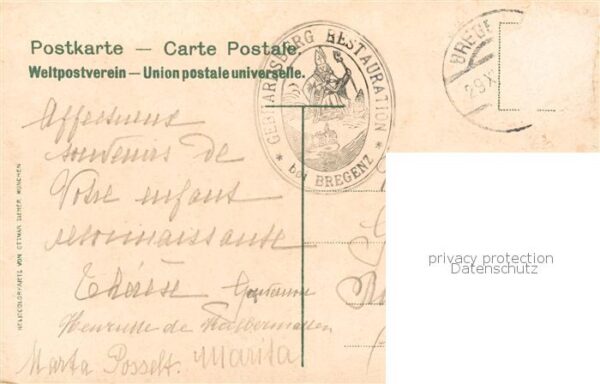 Postkarte — Carte Postale.
Weltpostverein — Union postale universelle.
GEBHARDSBERG RESTAURATION
* bei BREGENZ *
BREGE
29.X
Affectueux
souvenirs de
Votre enfant
reconnaissante
Thérèse
Henriette de
Marta Posselt. Marita
HELIOCOLORKARTE VON OTTMAR ZIEHER, MÜNCHEN
privacy protection
Datenschutz